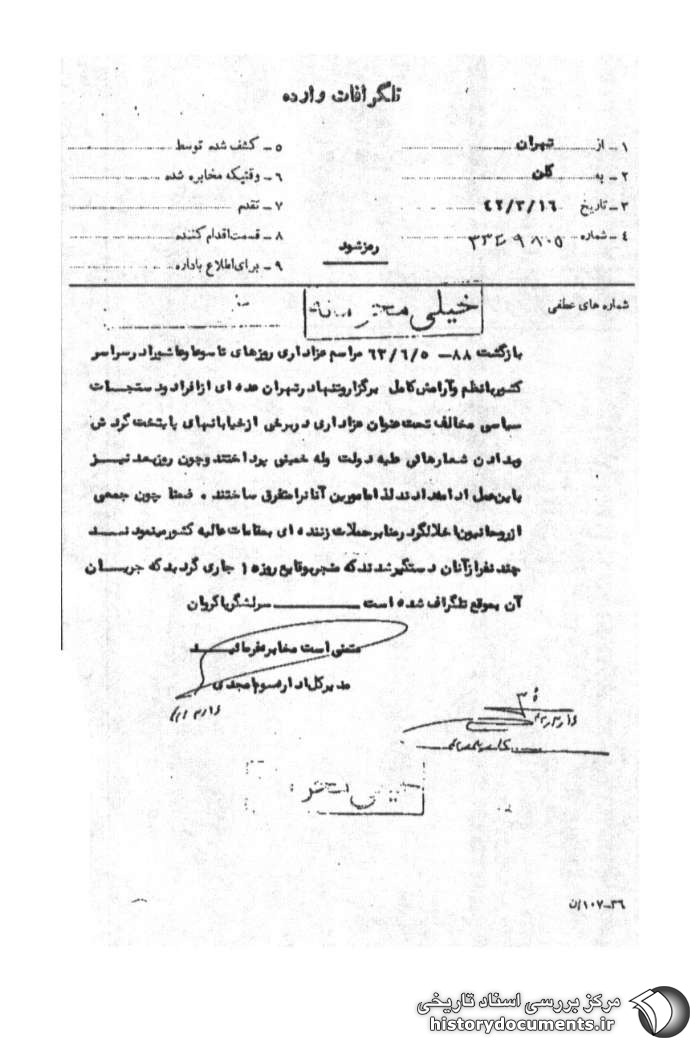 تلگرافات وارده
۱ ـ از تهران
۲ ـ به کلن
۳ ـ تاریخ ۴۲/۳/۱۶
۴ ـ شماره
۵ ـ کشف شده توسط
۶ ـ وقتیکه مخابره شده
۷ ـ تقدم
۸ ـ قسمت اقدام کننده
۹ ـ برای اطلاع باداره
رمز شود
شماره های عطفی
خیلی محرمانه
بازگشت ۸۸ـ ۶۳/۶/۵ مراسم عزاداری روزهای تاسوعا وعاشورا در سراسر
کشور با نظم و آرامش کامل برگزار و تنها در تهران عده ای از افراد و دستجات
سیاسی مخالف تحت عنوان عزاداری در برخی از خیابانهای پایتخت گردش
و بدادن شعارهائی علیه دولت وله خمینی پرداختند و چون روز بعد نیز
باین عمل ادامه دادند لذا مامورین آنان را متفرق ساختند . ضمنا چون جمعی
از روحانیون اخلالگر در منابر حملات زننده ای بمقامات عالیه کشور مینمودند
چند نفر از آنان دستگیر شدند که منجر بوقایع روز ۱۵ جاری گردید که جریان
آن بموقع تلگراف شده است سرلشگر پاکروان
متمنی است مخابره فرمائید
مدیرکل اداره سوم امجدی
خیلی محر
۳۶ـ۱۰۷/ن
مرکز بررسی اسناد تاریخی
historydocuments.ir